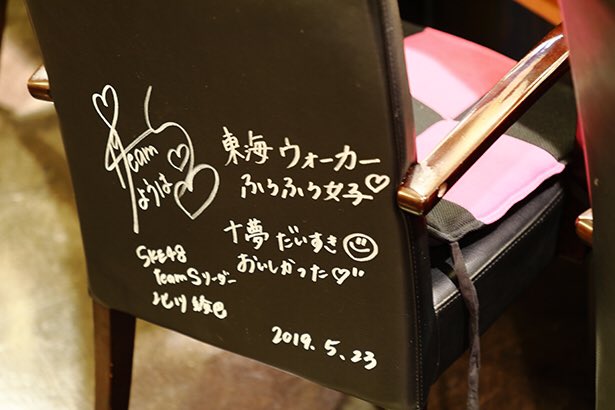 team
ょうは
東海ウォーカー
ふらふら女子♡
十夢 だいすき☺
おいしかった♡
SKE48
teamSリーダー
北川 綾巴
2019.5.23